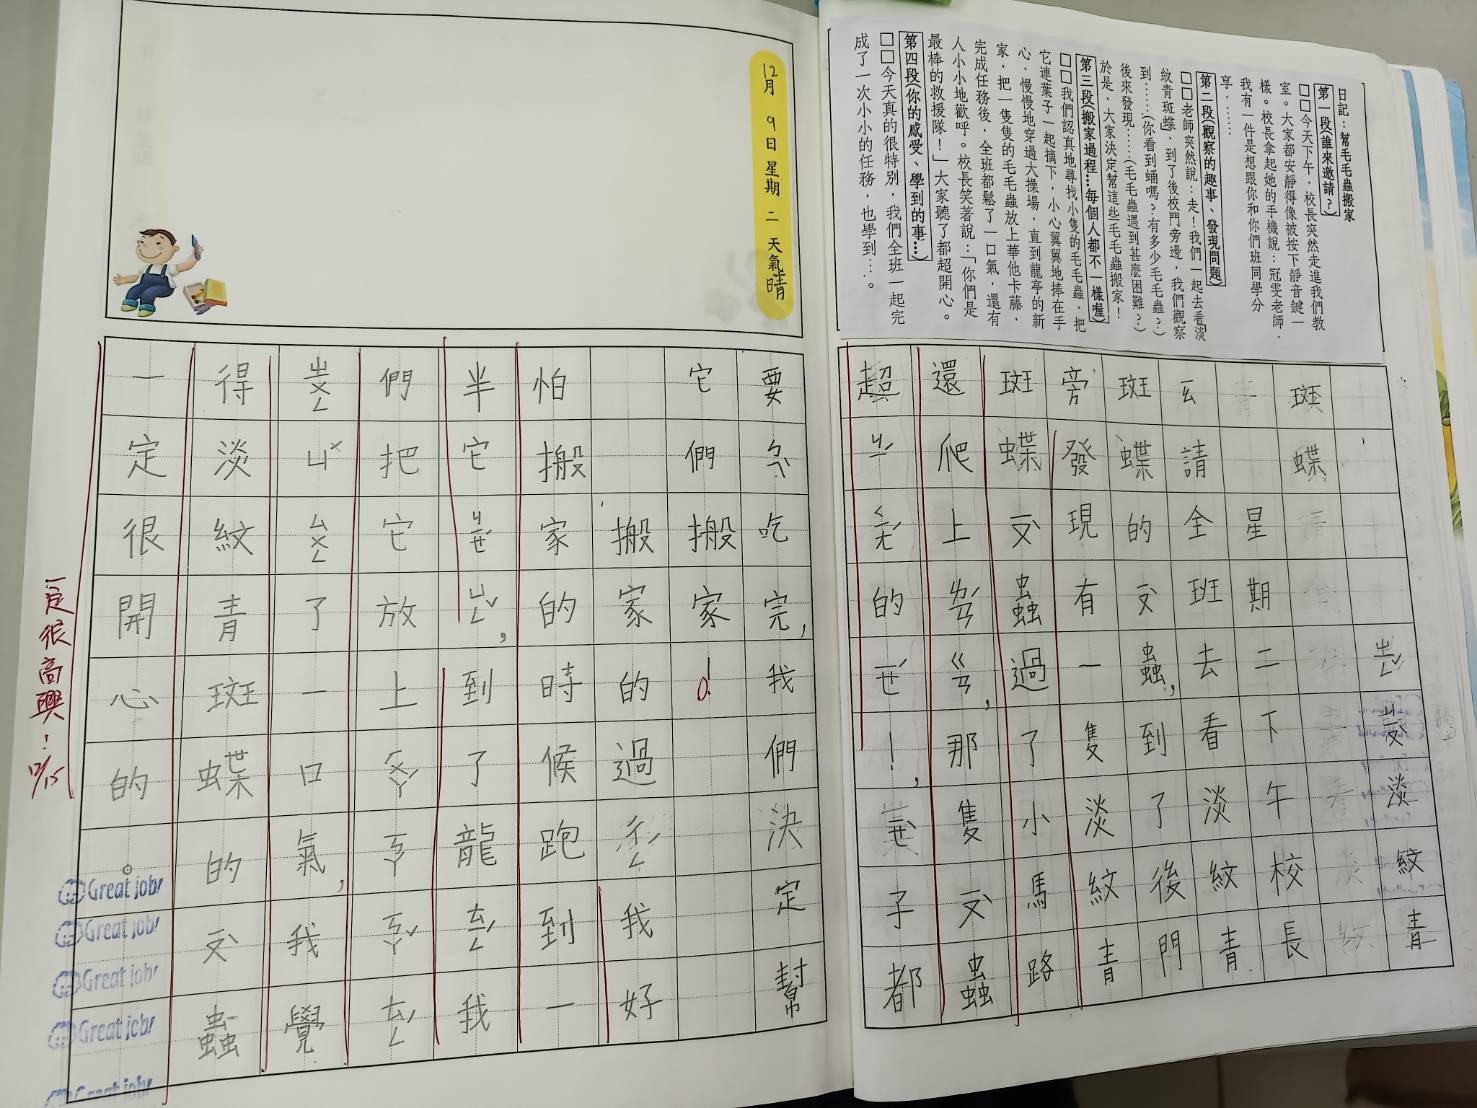 日記:幫毛毛蟲搬家
第一段(誰來邀請?)
□□今天下午,校長突然走進我們教
室。大家都安靜得像被按下靜音鍵一
樣。校長拿起她的手機說:冠雯老師,
我有一件是想跟你和你們班同學分
享......
第二段(觀察的趣事、發現問題)
□□老師突然說:走!我們一起去看淡
紋青斑蝶,到了後校門旁邊,我們觀察
到......(你看到蛹嗎?有多少毛毛蟲?)
後來發現......(毛毛蟲遇到甚麼困難?)
於是,大家決定幫這些毛毛蟲搬家!
第三段(搬家過程...每個人都不一樣喔)
□□我們認真地尋找小隻的毛毛蟲,把
它連葉子一起摘下,小心翼翼地捧在手
心,慢慢地穿過大操場,直到龍亭的新
家,把一隻隻的毛毛蟲放上華他卡藤,
完成任務後,全班都鬆了一口氣,還有
人小小地歡呼。校長笑著說:「你們是
最棒的救援隊!」大家聽了都超開心。
第四段(你的感受、學到的事...)
□□今天真的很特別,我們全班一起完
成了一次小小的任務,也學到...。
淡紋青
斑蝶
星期二下午校長
請全班去看淡紋青
斑蝶的ㄡˋ蟲,到了後門
旁發現有一隻淡紋青
斑蝶ㄡˋ蟲過了小馬路
還爬上ㄌㄢˊㄍㄢ,那隻ㄡˋ蟲
超 的ㄝˊ!, 子都
12月9日星期二天氣晴
要 吃完,我們決定幫
它們搬家!
搬家的過ㄔㄥˊ我好
怕搬家的時候跑到一
半它 ,到了龍ㄊㄧㄥˊ我
們把它放上ㄏㄨㄚˊㄎㄚˇㄊㄥˊ
ㄓㄨㄥㄩˋㄙㄨㄥ了一口氣,我覺
得淡紋青斑蝶的ㄡˋ蟲
一定很開心的。
一定很高興!12/15
Great job!
Great job!
Great job!
Great job!
Great job!